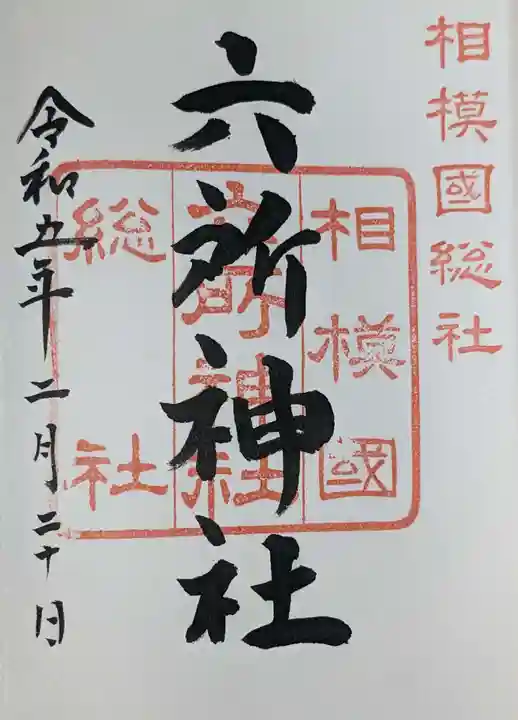 相模國総社
相模國
六所神社
総社
六所神社
令和五年二月二十日